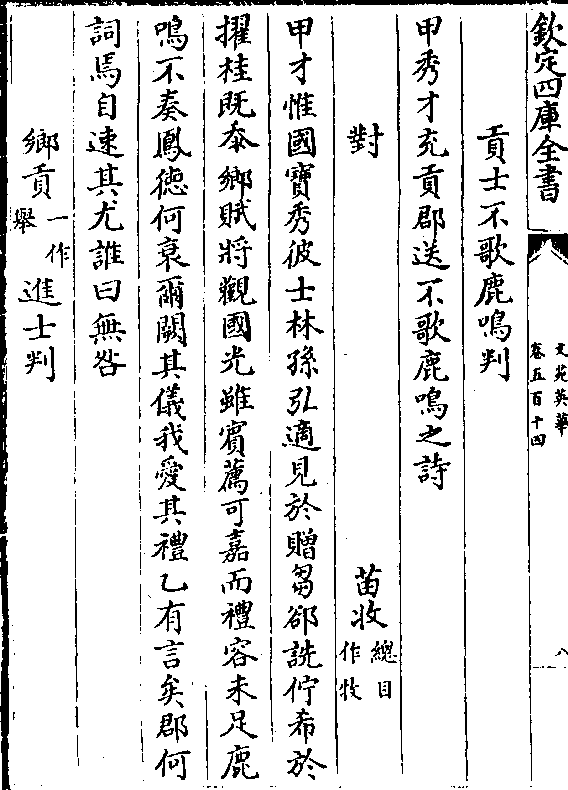 欽定四庫全書
文苑英華
卷五百十四
八
貢士不歌鹿鳴判
甲秀才充貢郡送不歌鹿鳴之詩
對
苗收總目作牧
甲才惟國寶秀彼士林孫弘適見於贈芻郤詵佇希於
擢桂既忝鄉賦將觀國光雖賓薦可嘉而禮容未足鹿
鳴不奏鳳德何衰爾闕其儀我愛其禮乙有言矣郡何
詞焉自速其尤誰曰無咎
鄉貢一作舉進士判